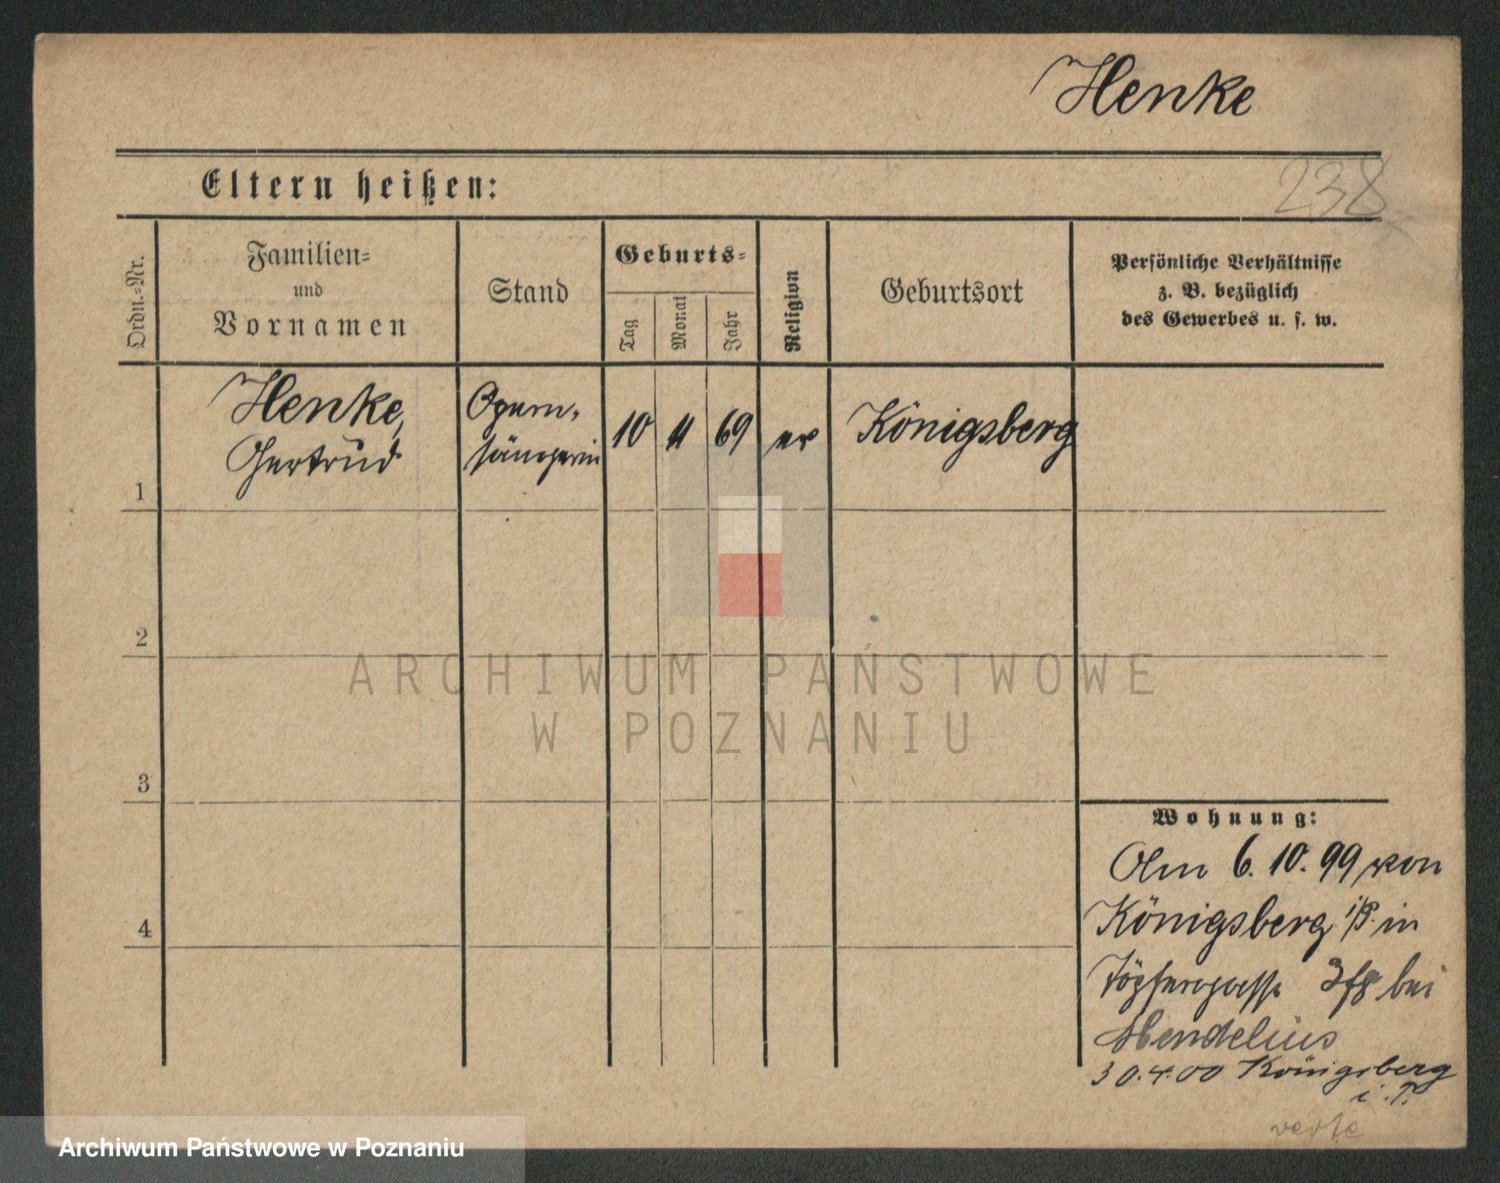 Henke
238
Eltern heißen:
Ordn.-Nr.
Familien-
und
Vornamen
Stand
Geburts-
Tag
Monat
Jahr
Religion
Geburtsort
Persönliche Verhältnisse
z. B. bezüglich
des Gewerbes u. s. w.
Henke,
Gertrud
Opern-
sängerin
10
11
69
ev
Königsberg
1
2
3
4
ARCHIWUM PAŃSTWOWE
W POZNANIU
Wohnung:
6. 10. 99 von
Königsberg i/P. in
Töpfergasse bei
Mendelius
30.4.00 Königsberg
i. P.
verte
Archiwum Państwowe w Poznaniu